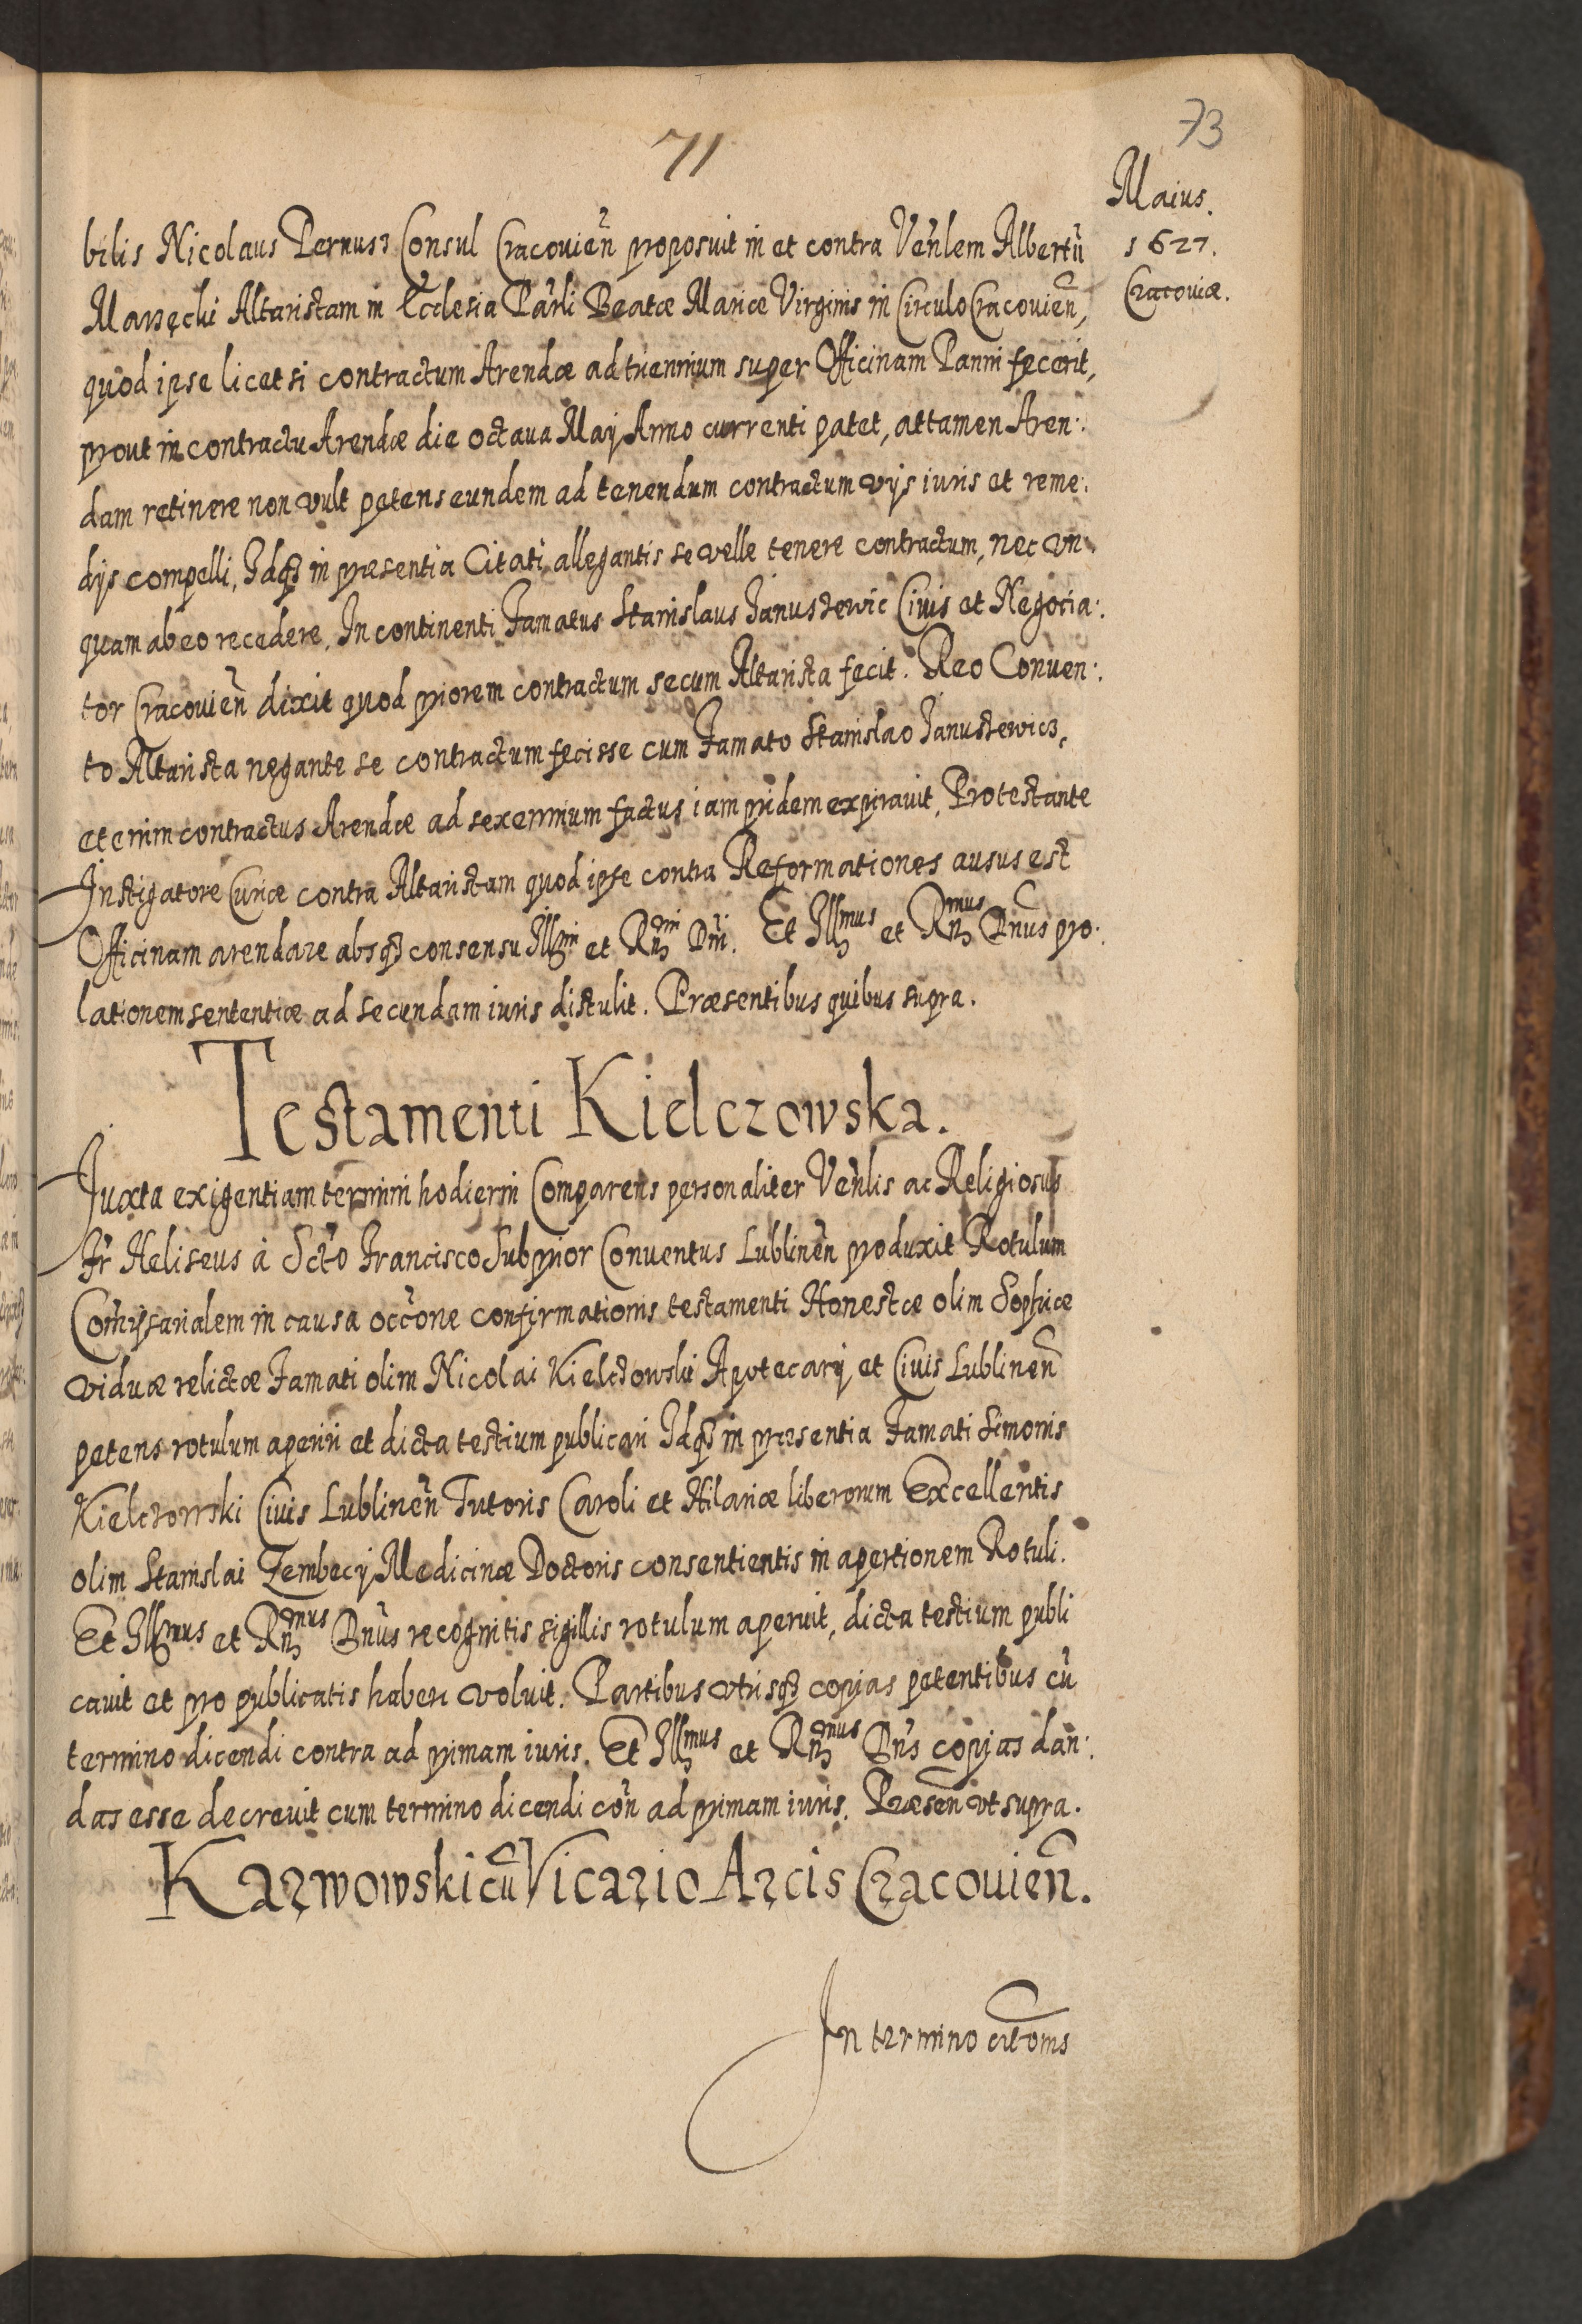 71
73
Maius.
1627.
Cracouiæ.
bilis Nicolaus Pernusz Consul Cracouień proposuit in et contra Veńlem Albertū
Altaristam in Ecclesia Pārli Beatæ Mariæ Virginis in Circulo Cracouień,
quod ipse licet si contractum Arendæ ad triennium super Officinam Panni fecerit,
prout in contractu Arendæ die octaua Maij Anno currenti patet, attamen Aren:
dam retinere non vult petens eundem ad tenendum contractum vijs iuris et reme:
dijs compelli, Idq3 in præsentia Citati allegantis se velle tenere contractum, nec vn:
quam ab eo recedere, In continenti Famatus Stanislaus Januszewic Ciuis et Negocia:
tor Cracouień dixit quod priorem contractum secum Altarista fecit. Reo Conuen:
to Altarista negante se contractum fecisse cum Famato Stanislao Januszewicz,
etenim contractus Arendæ ad sexennium factus iam pridem expirauit. Protestante
Instigatore Curiæ contra Altaristam quod ipse contra Reformationes ausus est
Officinam arendare absq3 consensu Illmi et Rñdmi Dñi. Et Illmus et Rñdmus Dñus pro:
lationem sententiæ ad secundam iuris distulit. Præsentibus quibus supra.
Testamenti Kielczowska.
Juxta exigentiam termini hodierni Comparens personaliter Veńlis ac Religiosus
Fr Heliseus à Scto Francisco Subprior Conuentus Lublineń produxit Rotulum
Comissarialem in causa occōne confirmationis testamenti Honestæ olim Sophiæ
viduæ relictæ Famati olim Nicolai Kielczowski Apotecarij et Ciuis Lublineń
petens rotulum aperiri et dicta testium publicari Idq3 in præsentia Famati Simonis
Kielczowski Ciuis Lublineń Tutoris Caroli et Hilariæ liberorum Excellentis
olim Stanislai Zembecij Medicinæ Doctoris consentientis in apertionem Rotuli.
Et Illmus et Rñdmus Dñus recognitis sigillis rotulum aperuit, dicta testium publi
cauit et pro publicatis haberi voluit. Partibus vtrisq3 copias petentibus cū
termino dicendi contra ad primam iuris. Et Illmus et Rñdmus Dñs copias dan:
das esse decreuit cum termino dicendi coń ad primam iuris. Præseń vt supra.
Karwowski cū Vicario Arcis Cracouień.
In termino citōnis